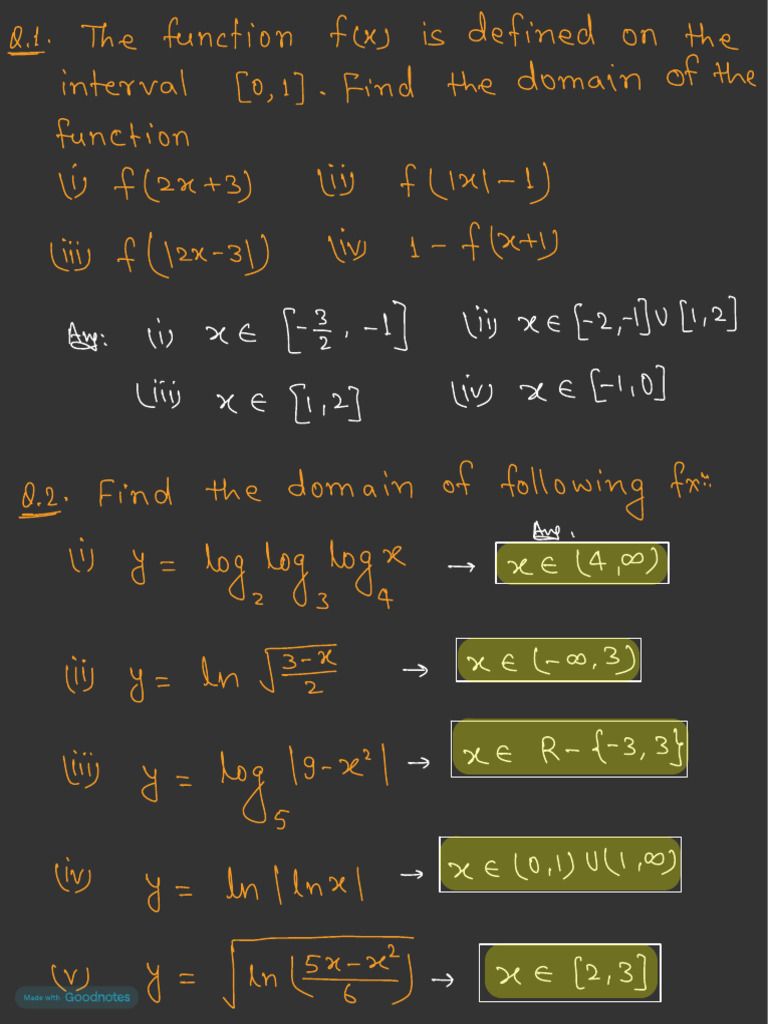 Q.1. The function f(x) is defined on the
interval [0,1]. Find the domain of the
function
(i) f(2x+3) (ii) f(|x|-1)
(iii) f(|2x-3|) (iv) 1-f(x+1)
Ans: (i) x∈[-3/2, -1] (ii) x∈[-2,-1]∪[1,2]
(iii) x∈[1,2] (iv) x∈[-1,0]
Q.2. Find the domain of following fxⁿ:
Ans.
(i) y = log₂ log₃ log₄ x → x∈(4,∞)
(ii) y = ln √((3-x)/2) → x∈(-∞,3)
(iii) y = log₅ |9-x²| → x∈ R-{-3,3}
(iv) y = ln|lnx| → x∈(0,1)∪(1,∞)
(v) y = √(ln((5x-x²)/6)) → x∈[2,3]
Made with Goodnotes